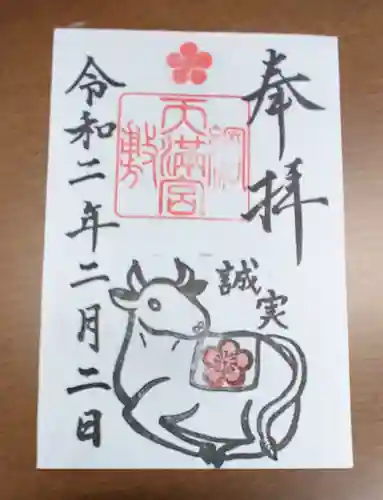 奉拝
誠実
綱敷天満宮
令和二年二月二日